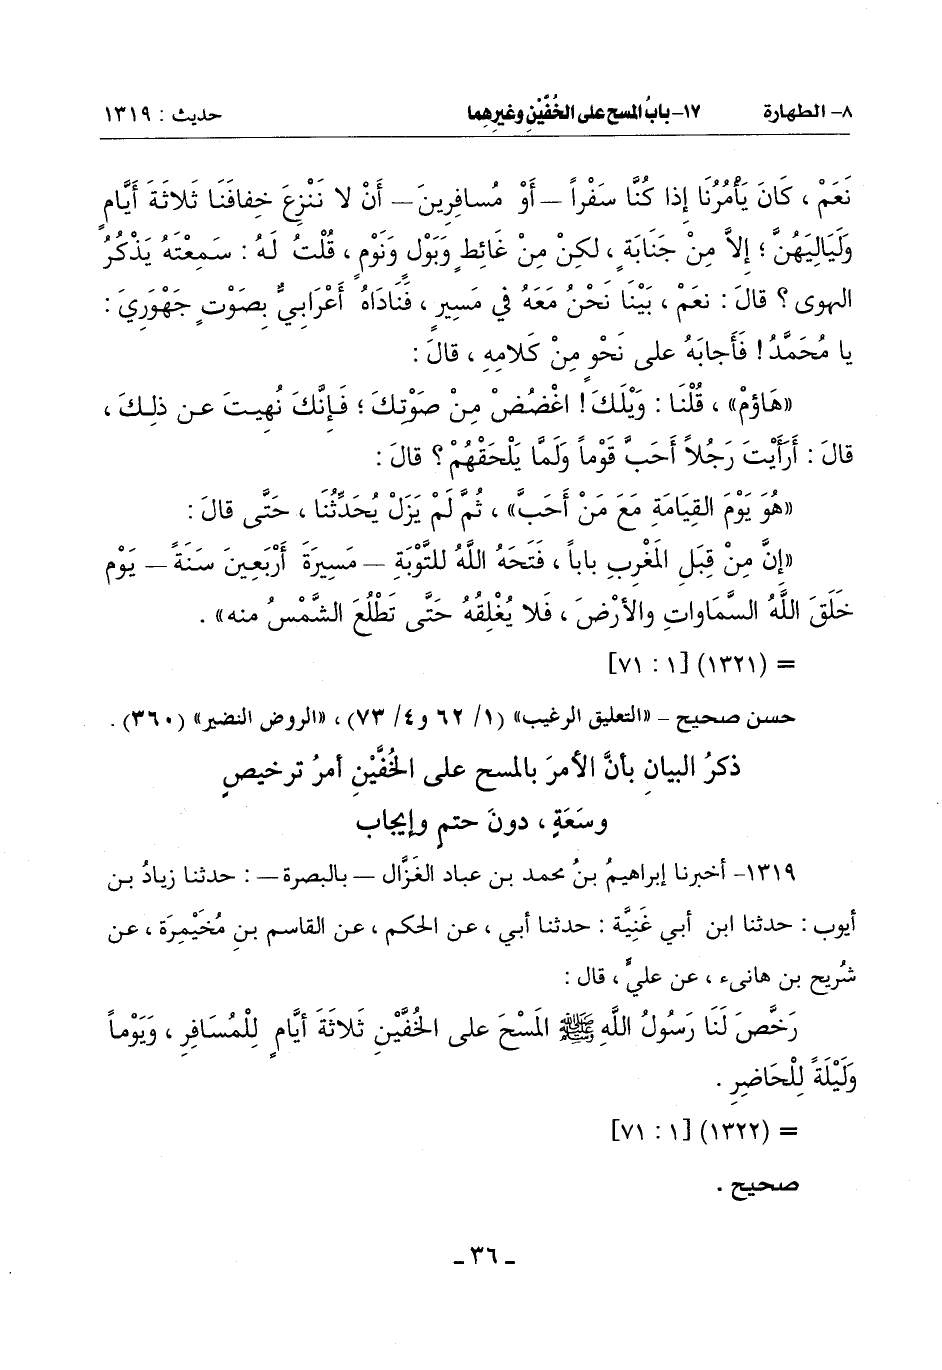 ٨- الطهارة ١٧- بابُ المسح على الخُفَّيْنِ وغيرِهِما حديث : ١٣١٩
نَعَمْ ، كَانَ يَأْمُرُنَا إذا كُنَّا سَفْراً – أَوْ مُسافِرينَ – أَنْ لا نَنْزِعَ خِفافَنَا ثَلاثَةَ أَيَّامٍ
وَلَيَالِيَهُنَّ ؛ إلاَّ مِنْ جَنَابَةٍ ، لكِنْ مِنْ غَائِطٍ وَبَوْلٍ ونَوْمٍ ، قُلْتُ لَهُ : سَمِعْتَهُ يَذْكُرُ
الهوى ؟ قالَ : نعَمْ ، بَيْنَا نَحْنُ مَعَهُ في مَسِيرٍ ، فَنَادَاهُ أَعْرَابيٌّ بِصَوْتٍ جَهْوَرِيَ :
يا مُحَمَّدُ ! فَأَجابَهُ على نَحْوٍ مِنْ كَلامِهِ ، قالَ :
«هَاؤمْ» ، قُلْنَا : وَيْلَكَ ! اغْضُضْ مِنْ صَوْتِكَ ؛ فَإنَّكَ نُهيتَ عَن ذلِكَ ،
قالَ : أَرَأَيْتَ رَجُلاً أَحَبَّ قَوْماً وَلَمَّا يَلْحَقْهُمْ ؟ قالَ :
«هُوَ يَوْمَ القِيَامَةِ مَعَ مَنْ أَحَبَّ» ، ثُمَّ لَمْ يَزَلْ يُحَدِّثُنَا ، حَتَّى قالَ :
«إنَّ مِنْ قِبَلِ المَغْرِبِ باباً ، فَتَحَهُ اللَّهُ للتَّوْبَةِ – مَسِيرَةَ أَرْبَعِينَ سَنَةً – يَوْم
خَلَقَ اللَّهُ السَّمَاواتِ والأَرْضَ ، فَلا يُغْلِقُهُ حَتَّى تَطْلُعَ الشَّمْسُ منه» .
= (١٣٢١) [١ : ٧١]
حسن صحيح - «التعليق الرغيب» (١/ ٦٢ و٤/ ٧٣) ، «الروض النضير» (٣٦٠) .
ذكرُ البيانِ بأنَّ الأمرَ بالمسح على الخُفَّيْنِ أمرُ ترخيصٍ
وسَعَةٍ ، دونَ حتمٍ وإيجاب
١٣١٩- أخبرنا إبراهيمُ بنُ محمد بن عباد الغَزَّال – بالبصرة – : حدثنا زيادُ بن
أيوب : حدثنا ابن أبي غَنِيَّة : حدثنا أبي ، عن الحكم ، عن القاسم بن مُخَيْمِرَة ، عن
شُريح بن هانىء ، عن عليٍّ ، قال :
رَخَّصَ لَنَا رَسُولُ اللَّهِ ﷺ المَسْحَ على الخُفَّيْنِ ثَلاثَةَ أَيَّامٍ لِلْمُسَافِرِ ، وَيَوْماً
وَلَيْلَةً لِلْحَاضِرِ .
= (١٣٢٢) [١ : ٧١]
صحيح .
- ٣٦ -